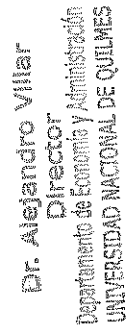 Dr. Alejandro Villar
Director
Departamento de Economía y Administración
UNIVERSIDAD NACIONAL DE QUILMES